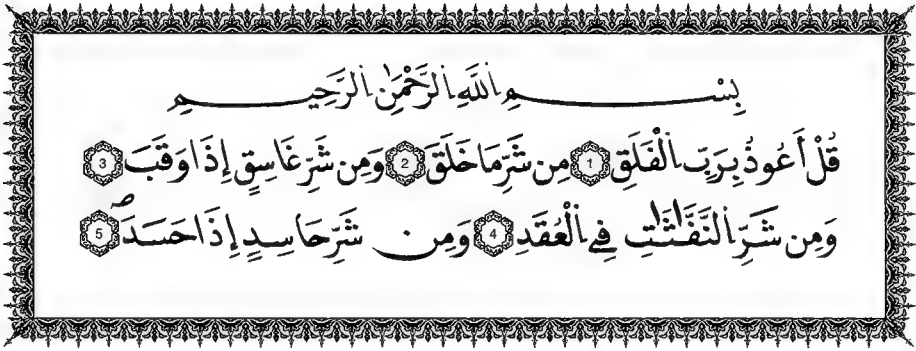 بِسْمِ اللَّهِ الرَّحْمَٰنِ الرَّحِيمِ
قُلْ أَعُوذُ بِرَبِّ الْفَلَقِ 1 مِن شَرِّ مَا خَلَقَ 2 وَمِن شَرِّ غَاسِقٍ إِذَا وَقَبَ 3
وَمِن شَرِّ النَّفَّٰثَٰتِ فِے الْعُقَدِ 4 وَمِن شَرِّ حَاسِدٍ إِذَا حَسَدَ ۖ 5